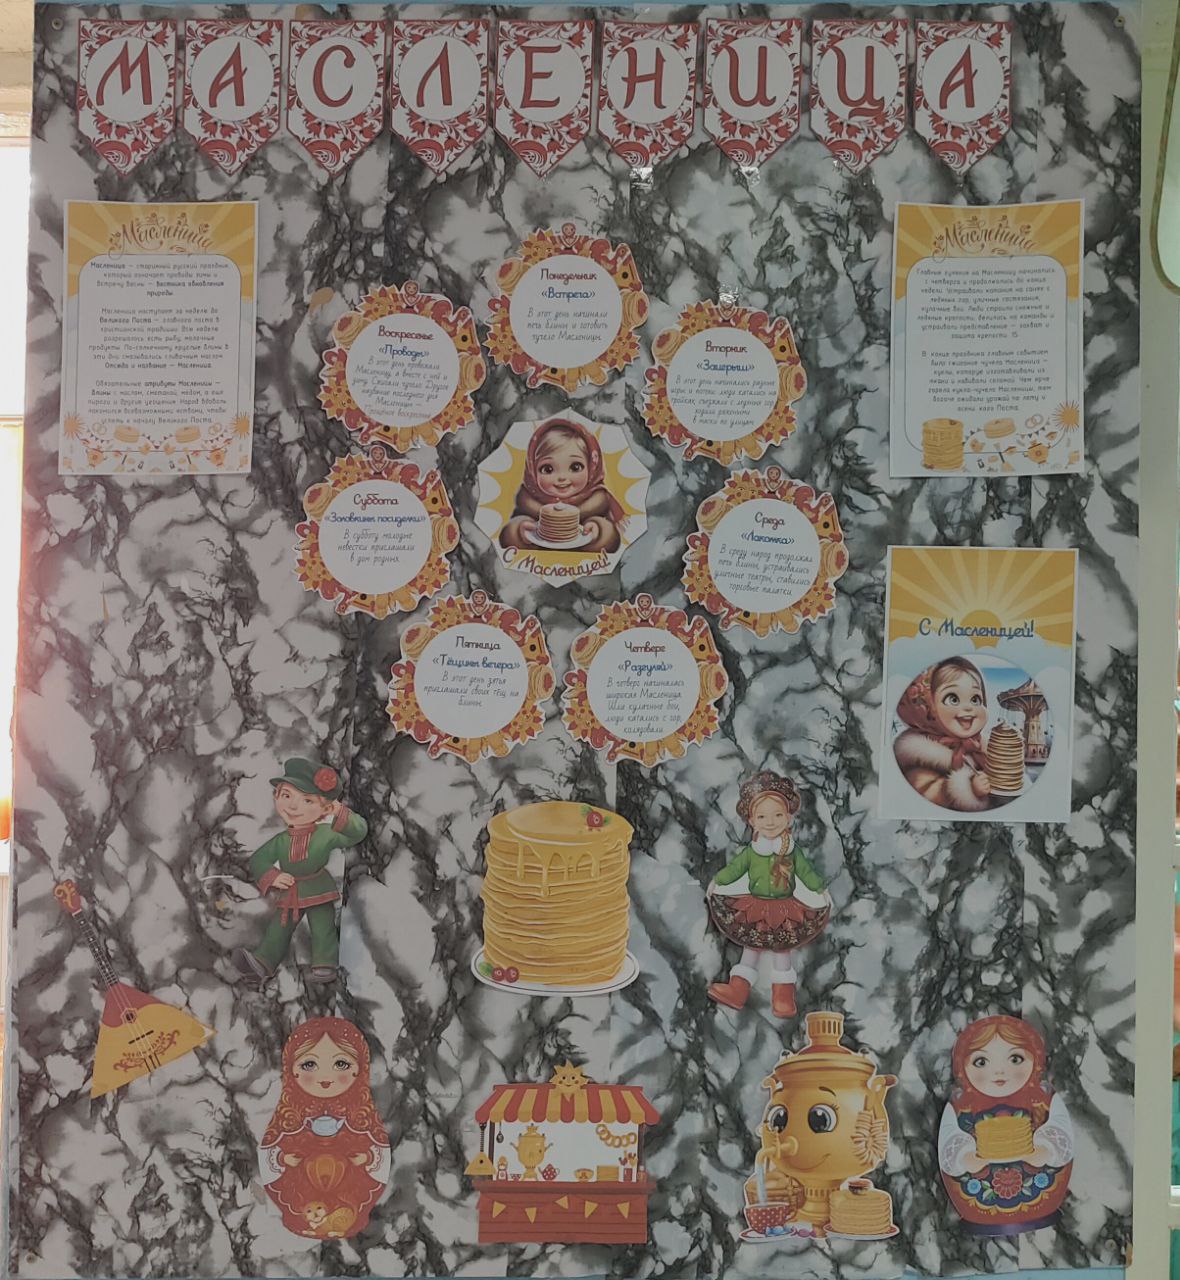 МАСЛЕНИЦА
Масленица
Масленица – старинный русский праздник,
который означает проводы зимы и
встречу весны – вестника обновления
природы.
Масленица наступает за неделю до
Великого Поста – главного поста в
христианской традиции. Всю неделю
разрешалось есть рыбу, молочные
продукты. По-солнечному круглые блины в
эти дни смазывались сливочным маслом.
Отсюда и название – Масленица.
Обязательные атрибуты Масленицы –
блины с маслом, сметаной, медом, а ещё
пироги и другие угощения. Народ вдоволь
лакомится всевозможными яствами, чтобы
успеть к началу Великого Поста.
Понедельник
«Встреча»
В этот день начинали
печь блины и готовить
чучело Масленицы.
Вторник
«Заигрыш»
В этот день начинались разные
игры и потехи: люди катались на
тройках, съезжали с ледяных гор,
ходили ряжеными
в масках по улицам
Среда
«Лакомка»
В среду народ продолжал
печь блины, устраивались
уличные театры, ставились
торговые палатки.
Четверг
«Разгуляй»
В четверг начиналась
широкая Масленица.
Шли кулачные бои,
люди катались с гор,
колядовали
Пятница
«Тёщины вечера»
В этот день зятья
приглашали своих тёщ на
блины.
Суббота
«Золовкины посиделки»
В субботу молодые
невестки приглашали
в дом родных
Воскресенье
«Проводы»
В этот день провожали
Масленицу, а вместе с ней и
зиму. Сжигали чучело. Другое
название последнего дня
Масленицы –
Прощёное воскресенье
С Масленицей!
Масленица
Главные гуляния на Масленицу начинались
с четверга и продолжались до конца
недели. Устраивали катания на санях с
ледяных гор, уличные состязания,
кулачные бои. Люди строили снежные и
ледяные крепости, делились на команды и
устраивали представление – захват и
защита крепости. 15
В конце праздника главным событием
было сжигание чучела Масленицы –
куклы, которую изготавливали из
ткани и набивали соломой. Чем ярче
горела кукла-чучело Масленицы, тем
богаче ожидали урожай по лету и
осени
кого Поста.
С Масленицей!
М